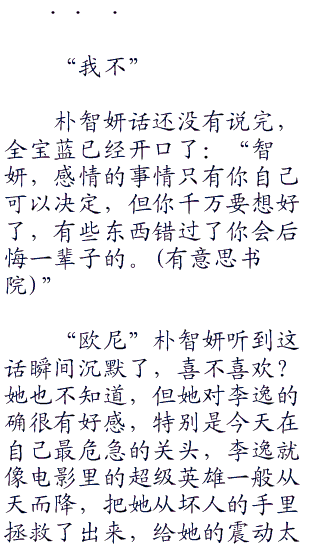 . . .
“我不”
朴智妍话还没有说完，
全宝蓝已经开口了：“智
妍，感情的事情只有你自己
可以决定，但你千万要想好
了，有些东西错过了你会后
悔一辈子的。(有意思书
院)”
“欧尼”朴智妍听到这
话瞬间沉默了，喜不喜欢？
她也不知道，但她对李逸的
确很有好感，特别是今天在
自己最危急的关头，李逸就
像电影里的超级英雄一般从
天而降，把她从坏人的手里
拯救了出来，给她的震动太